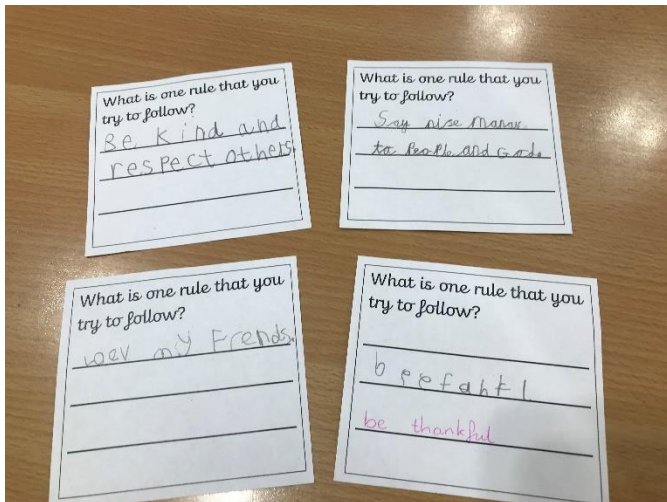 What is one rule that you
try to follow?
Be kind and
respect others.
What is one rule that you
try to follow?
Say nise manar
to People and Gods
What is one rule that you
try to follow?
loev my Frends.
What is one rule that you
try to follow?
be thankful